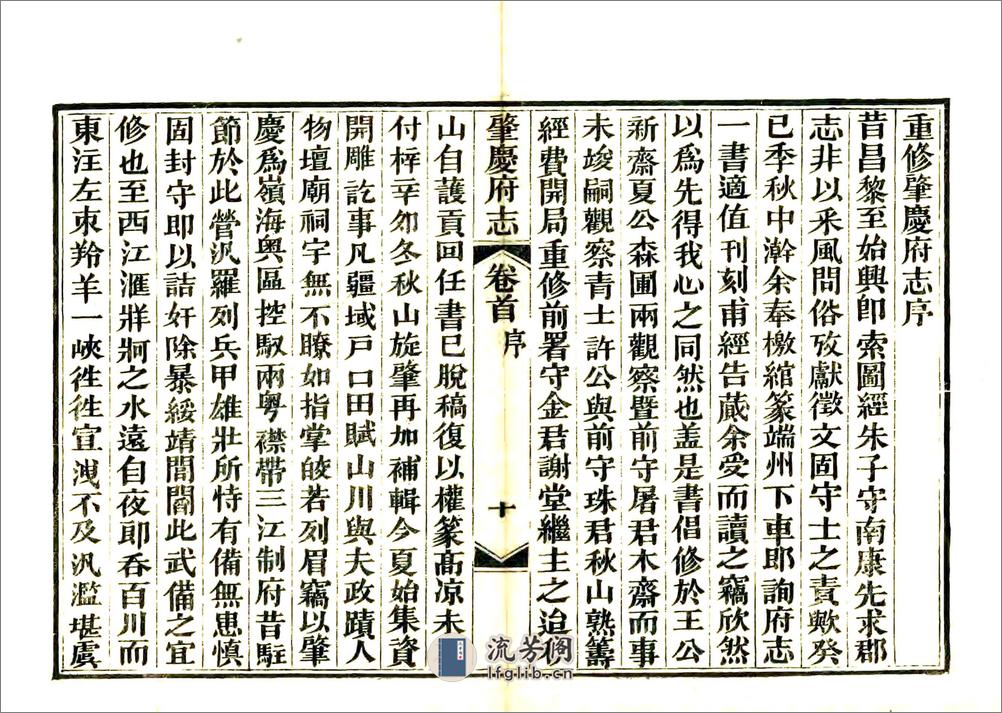 重修肇慶府志序
昔昌黎至始興卽索圖經朱子守南康先求郡
志非以采風問俗攷獻徵文固守士之責歟癸
已季秋中澣余奉檄綰篆端州下車郎詢府志
一書適值刊刻甫經告蕆余受而讀之竊欣然
以爲先得我心之同然也葢是書倡修於王公
新齋夏公森圃兩觀察暨前守屠君木齋而事
未竣嗣觀察青士許公與前守珠君秋山熟籌
經費開局重修前署守金君謝堂繼主之迨
肇慶府志 卷首 序 十
山自護貢回任書已脫稿復以權篆高凉未
付梓辛夘冬秋山旋肇再加補輯今夏始集資
開雕訖事凡疆域戸口田賦山川與夫政蹟人
物壇廟祠宇無不瞭如指掌皎若列眉竊以肇
慶爲嶺海奧區控馭兩粤襟帶三江制府昔駐
節於此營汛羅列兵甲雄壯所恃有備無患慎
固封守即以詰奸除暴綏靖閭閻此武備之宜
修也至西江滙牂牁之水遠自夜郎吞百川而
東汪左束羚羊一峽徃徃宣洩不及汎濫堪虞
流芳阁
lfglib.cn